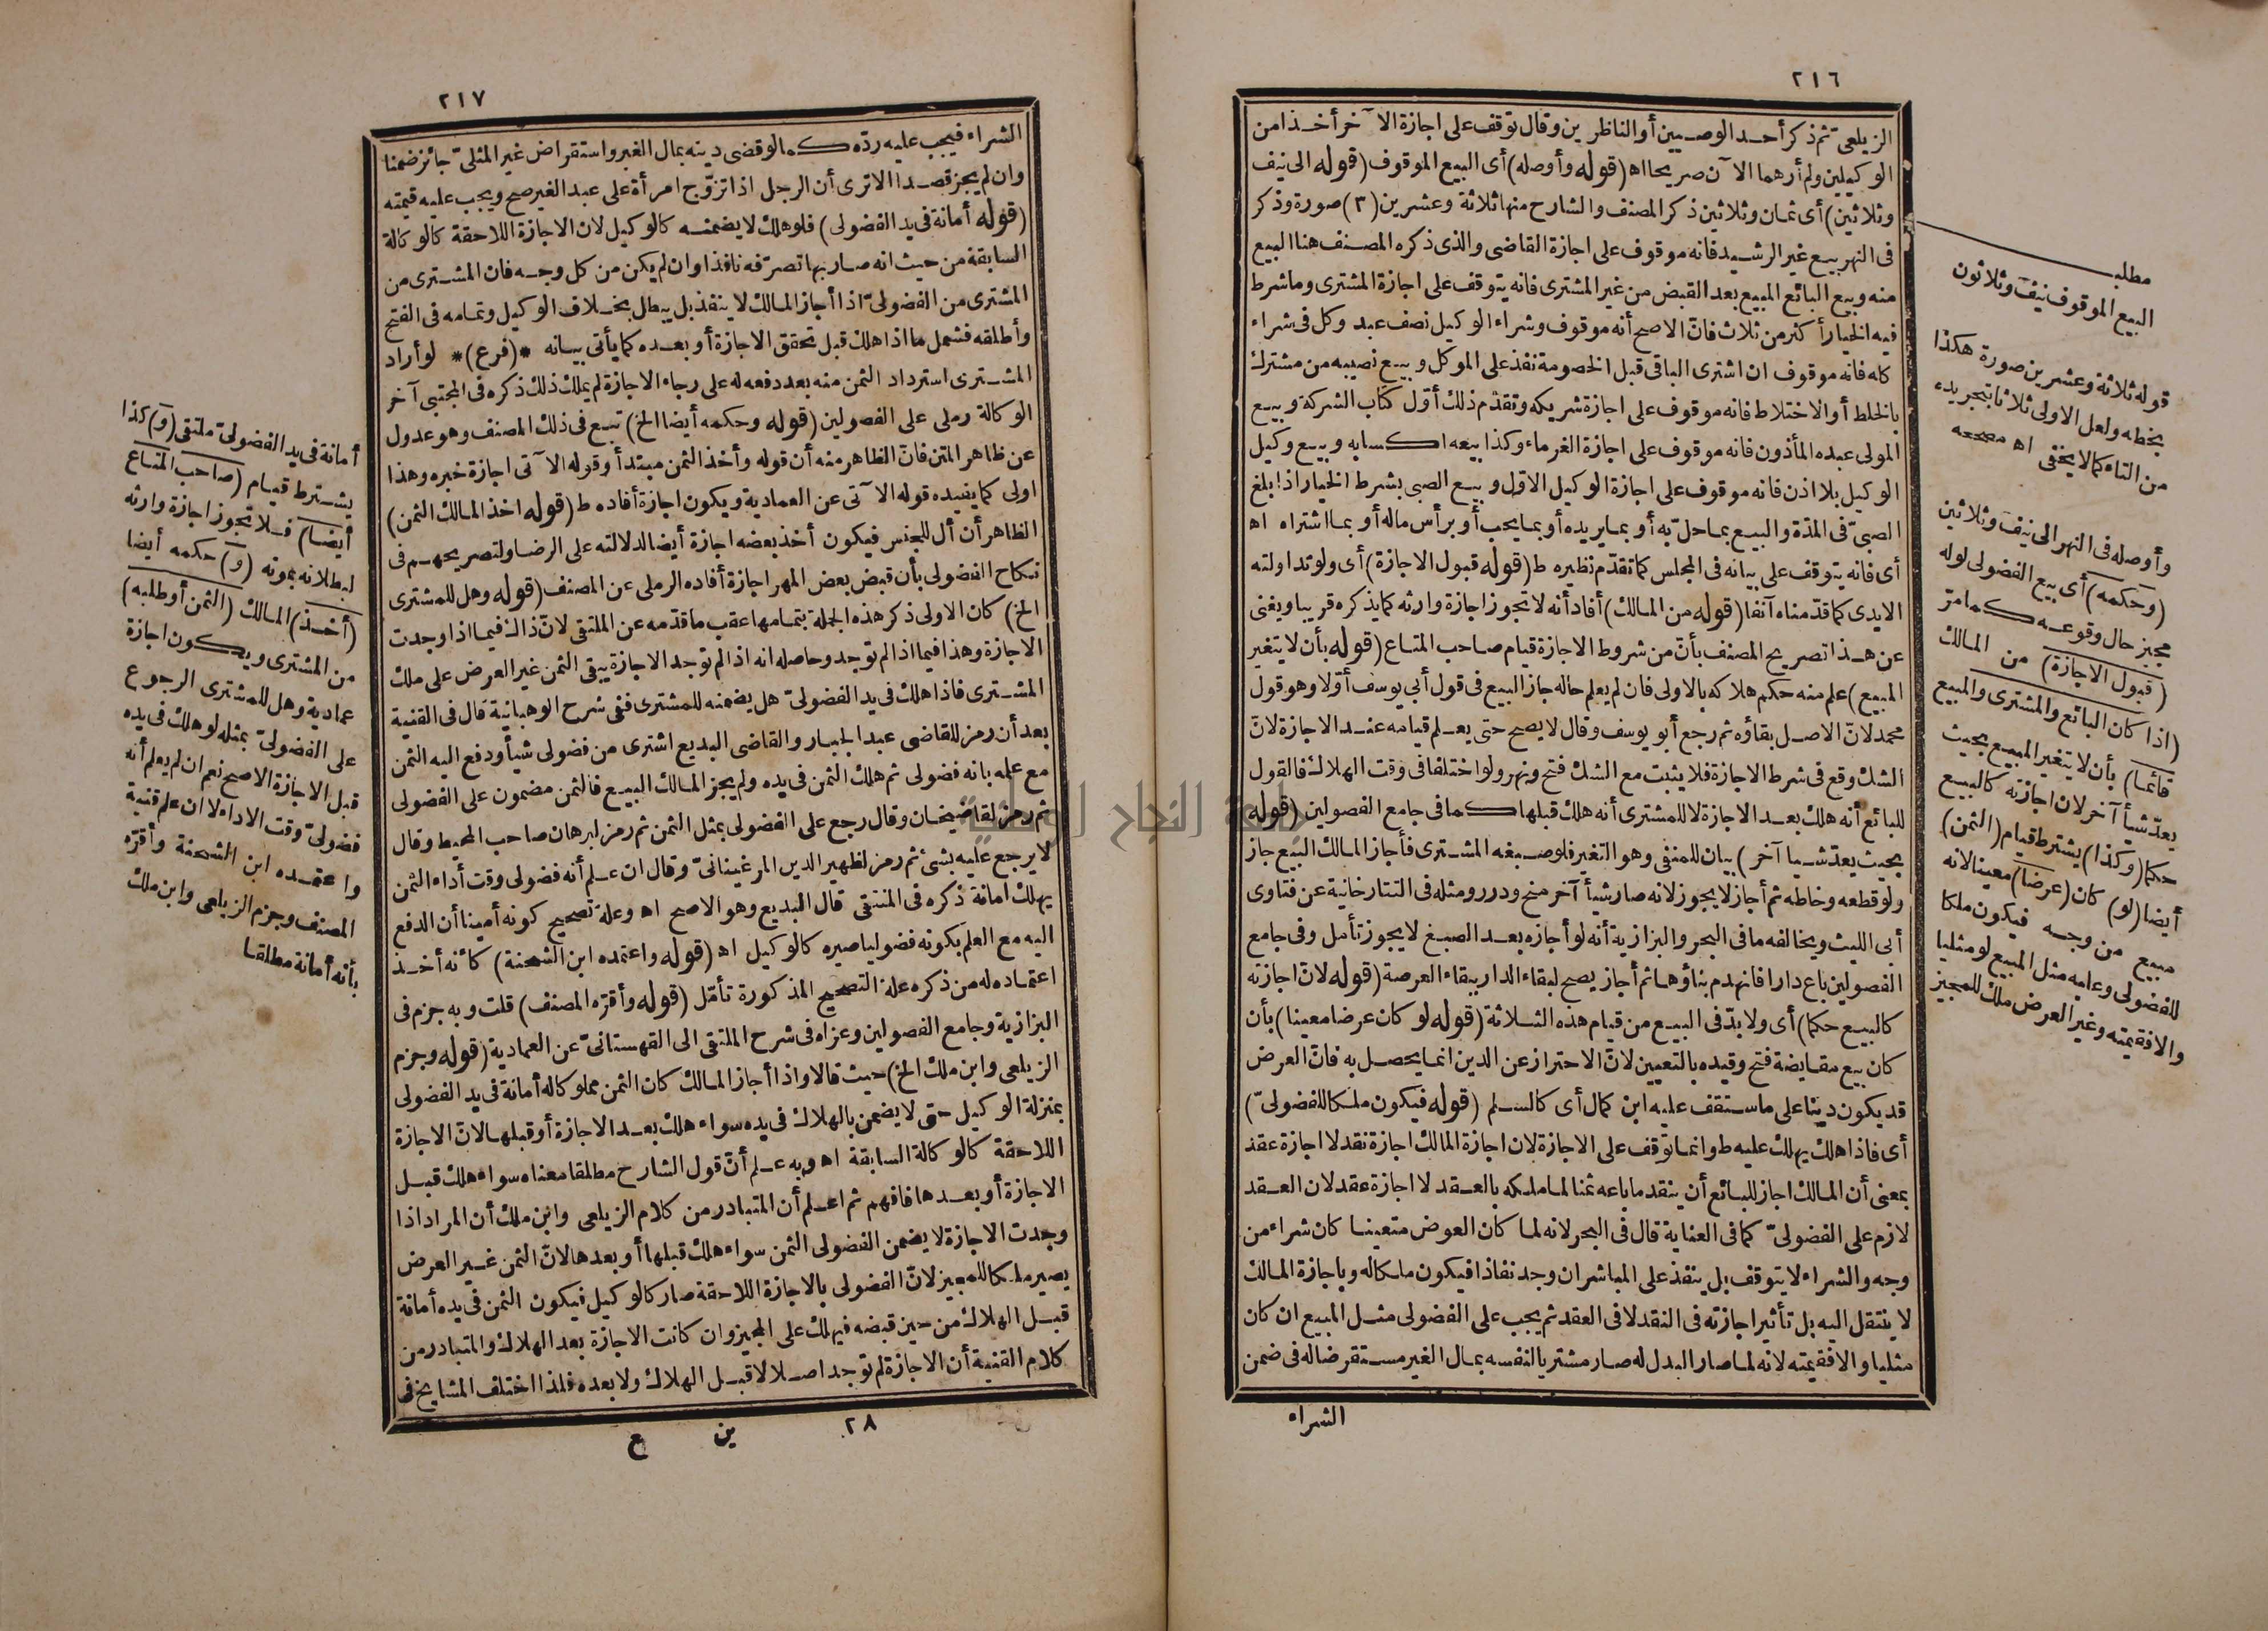 ٢١٦
الزيلعىّ ثم ذكر أحد الوصيين أو الناظرين وقال توقف على اجازة الآخر أخذا من
الوكيلين ولم أرهما الآن صريحا اه (قوله وأوصله) أى البيع الموقوف (قوله الى نيف
وثلاثين) أى ثمان وثلاثين ذكر المصنف والشارح منها ثلاثة وعشرين (٣) صورة وذكر
فى النهر بيع غير الرشيد فانه موقوف على اجازة القاضى والذى ذكره المصنف هنا البيع
منه وبيع البائع المبيع بعد القبض من غير المشترى فانه يتوقف على اجازة المشترى وماشرط
فيه الخيار أكثر من ثلاث فانّ الاصح أنه موقوف وشراء الوكيل نصف عبد وكل فى شراء
كله فانه موقوف ان اشترى الباقى قبل الخصومة نفذ على الموكل وبيع نصيبه من مشترك
بالخلط أو الاختلاط فانه موقوف على اجازة شريكه وتقدّم ذلك أوّل كتاب الشركة وبيع
المولى عبده المأذون فانه موقوف على اجازة الغرماء وكذا بيعه اكسابه وبيع وكيل
الوكيل بلا اذن فانه موقوف على اجازة الوكيل الاوّل وبيع الصبى بشرط الخيار اذا بلغ
الصبىّ فى المدّة والبيع بما حلّ به أو بما يريده أو بما يحب أو برأس ماله أو بما اشتراه اه
أى فانه يتوقف على بيانه فى المجلس كما تقدّم نظيره ط (قوله قبول الاجازة) أى ولو تداولته
الايدى كما قدّمناه آنفا (قوله من المالك) أفاد أنه لا تجوز اجازة وارثه كما يذكره قريبا ويغنى
عن هذا تصريح المصنف بأنّ من شروط الاجازة قيام صاحب المتاع (قوله بأن لا يتغير
المبيع) علم منه حكم هلاكه بالاولى فان لم يعلم حاله جاز البيع فى قول أبى يوسف أوّلا وهو قول
محمد لانّ الاصل بقاؤه ثم رجع أبو يوسف وقال لا يصح حتى يعلم قيامه عند الاجازة لانّ
الشك وقع فى شرط الاجازة فلا يثبت مع الشك فتح ونهر ولو اختلفا فى وقت الهلاك فالقول
للبائع أنه هلك بعد الاجازة لا للمشترى أنه هلك قبلها كما فى جامع الفصولين (قوله
بحيث يعدّ شيأ آخر) بيان للمنفى وهو التغير فلو صبغه المشترى فأجاز المالك البيع جاز
ولو قطعه وخاطه ثم أجاز لا يجوز لانه صار شيأ آخر منح ودرر ومثله فى التتارخانية عن فتاوى
أبى الليث ويخالفه ما فى البحر والبزازية أنه لو أجازه بعد الصبغ لا يجوز تأمل وفى جامع
الفصولين باع دارا فانهدم بناؤها ثم أجاز يصح لبقاء الدار ببقاء العرصة (قوله لانّ اجازته
كالبيع حكما) أى ولا بدّ فى البيع من قيام هذه الثلاثة (قوله لو كان عرضا معينا) بأن
كان بيع مقايضة فتح وقيده بالتعيين لانّ الاحتراز عن الدين انما يحصل به فانّ العرض
قد يكون دينا على ما ستقف عليه ابن كمال أى كالسلم (قوله فيكون ملكا للفضولىّ)
أى فاذا هلك يهلك عليه ط وانما توقف على الاجازة لان اجازة المالك اجازة نقد لا اجازة عقد
بمعنى أن المالك اجاز للبائع أن ينقد ما باعه ثمنا لما ملكه بالعقد لا اجازة عقد لان العقد
لازم على الفضولىّ كما فى العناية قال فى البحر لانه لما كان العوض متعينا كان شراء من
وجه والشراء لا يتوقف بل ينفذ على المباشر ان وجد نفاذا فيكون ملكا له وباجازة المالك
لا ينتقل اليه بل تأثير اجازته فى النقد لا فى العقد ثم يجب على الفضولى مثل المبيع ان كان
مثليا والا فقيمته لانه لما صار البدل له صار مشتريا لنفسه بمال الغير مستقرضا له فى ضمن
الشراء
مطلب
البيع الموقوف نيف وثلاثون
قوله ثلاثة وعشرين صورة هكذا
بخطه ولعل الاولى ثلاثا بتجريده
من التاء كما لا يخفى اه مصححه
وأوصله فى النهر الى نيف وثلاثين
(وحكمه) أى بيع الفضولى لو له
مجيز حال وقوعه كما مرّ
(قبول الاجازة) من المالك
(اذا كان البائع والمشترى والمبيع
قائما) بأن لا يتغير المبيع بحيث
يعدّ شيأ آخر لان اجازته كالبيع
حكما (وكذا) يشترط قيام (الثمن)
أيضا (لو) كان (عرضا) معينا لانه
مبيع من وجه فيكون ملكا
للفضولى وعليه مثل المبيع لو مثليا
والا فقيمته وغير العرض ملك للمجيز
٢١٧
الشراء فيجب عليه ردّه كما لو قضى دينه بمال الغير واستقراض غير المثلىّ جائز ضمنا
وان لم يجز قصدا الا ترى أن الرجل اذا تزوّج امرأة على عبد الغير صح ويجب عليه قيمته
(قوله أمانة فى يد الفضولى) فلو هلك لا يضمنه كالوكيل لان الاجازة اللاحقة كالوكالة
السابقة من حيث انه صار بها تصرّفه نافذا وان لم يكن من كل وجه فان المشترى من
المشترى من الفضولىّ اذا أجاز المالك لا ينفذ بل يبطل بخلاف الوكيل وتمامه فى الفتح
وأطلقه فشمل ما اذا هلك قبل تحقق الاجازة أو بعده كما يأتى بيانه *(فرع)* لو أراد
المشترى استرداد الثمن منه بعد دفعه له على رجاء الاجازة لم يملك ذلك ذكره فى المجتبى آخر
الوكالة رملى على الفصولين (قوله وحكمه أيضا الخ) تبع فى ذلك المصنف وهو عدول
عن ظاهر المتن فانّ الظاهر منه أن قوله وأخذ الثمن مبتدأ وقوله الآتى اجازة خبره وهذا
اولى كما يفيده قوله الآتى عن العمادية ويكون اجازة أفاده ط (قوله اخذ المالك الثمن)
الظاهر أن أل للجنس فيكون أخذ بعضه اجازة أيضا لدلالته على الرضا ولتصريحهم فى
نكاح الفضولى بأن قبض بعض المهر اجازة أفاده الرملى عن المصنف (قوله وهل للمشترى
الخ) كان الاولى ذكر هذه الجملة بتمامها عقب ما قدّمه عن الملتقى لانّ ذاك فيما اذا وجدت
الاجازة وهذا فيما اذا لم توجد وحاصله انه اذا لم توجد الاجازة يبقى الثمن غير العرض على ملك
المشترى فاذا هلك فى يد الفضولىّ هل يضمنه للمشترى ففى شرح الوهبانية قال فى القنية
بعد أن رمز للقاضى عبد الجبار والقاضى البديع اشترى من فضولى شيأ ودفع اليه الثمن
مع علمه بانه فضولى ثم هلك الثمن فى يده ولم يجز المالك البيع فالثمن مضمون على الفضولى
ثم رمز لقاضيخان وقال رجع على الفضولى بمثل الثمن ثم رمز لبرهان صاحب المحيط وقال
لا يرجع عليه بشئ ثم رمز لظهير الدين المرغينانىّ وقال ان علم أنه فضولى وقت أداء الثمن
يهلك امانة ذكره فى المنتقى قال البديع وهو الاصح اه وعلة تصحيح كونه أمينا أن الدفع
اليه مع العلم بكونه فضوليا صيره كالوكيل اه (قوله واعتمده ابن الشحنة) كأنه أخذ
اعتماده له من ذكره علة التصحيح المذكورة تأمّل (قوله وأقرّه المصنف) قلت وبه جزم فى
البزازية وجامع الفصولين وعزاه فى شرح الملتقى الى القهستانىّ عن العمادية (قوله وجزم
الزيلعى وابن ملك الخ) حيث قالا واذا أجاز المالك كان الثمن مملوكا له أمانة فى يد الفضولى
بمنزلة الوكيل حتى لا يضمن بالهلاك فى يده سواء هلك بعد الاجازة أو قبلها لانّ الاجازة
اللاحقة كالوكالة السابقة اه وبه علم أنّ قول الشارح مطلقا معناه سواء هلك قبل
الاجازة أو بعدها فافهم ثم اعلم أن المتبادر من كلام الزيلعى وابن ملك أن المراد اذا
وجدت الاجازة لا يضمن الفضولى الثمن سواء هلك قبلها أو بعدها لانّ الثمن غير العرض
يصير ملكا للمجيز لانّ الفضولى بالاجازة اللاحقة صار كالوكيل فيكون الثمن فى يده أمانة
قبل الهلاك من حين قبضه فيهلك على المجيز وان كانت الاجازة بعد الهلاك والمتبادر من
كلام القنية أن الاجازة لم توجد اصلا لا قبل الهلاك ولا بعده فلذا اختلف المشايخ فى
٢٨ ين ع
أمانة فى يد الفضولىّ ملتقى (و) كذا
يشترط قيام (صاحب المتاع
أيضا) فلا تجوز اجازة وارثه
لبطلانه بموته (و) حكمه أيضا
(أخذ) المالك (الثمن أو طلبه)
من المشترى ويكون اجازة
عمادية وهل للمشترى الرجوع
على الفضولىّ بمثله لو هلك فى يده
قبل الاجازة الاصح نعم ان لم يعلم أنه
فضولىّ وقت الاداء لا ان علم قنية
واعتمده ابن الشحنة وأقرّه
المصنف وجزم الزيلعى وابن ملك
بأنه أمانة مطلقا